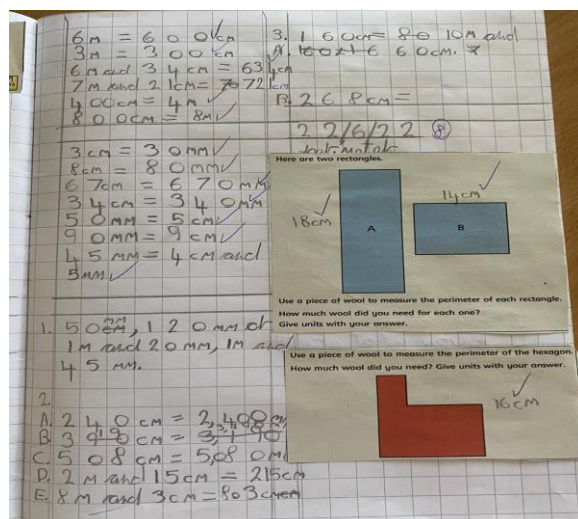 6m = 600cm
3m = 300cm
6m and 34cm = 634cm
7m and 21cm = 721cm
400cm = 4m
800cm = 8m
3cm = 30mm
8cm = 80mm
67cm = 670mm
34cm = 340mm
50mm = 5cm
90mm = 9cm
45mm = 4cm and
5mm
1. 50mm, 120mm or
1m and 20mm, 1m and
45 mm.
2
A. 240cm = 2,400m
B
C. 508cm = 5,080m
D. 2m and 15cm = 215cm
E. 8m and 3cm = 803cm
3. 160cm = 10m and
A. 60cm.
B. 268cm =
22/6/22 8
Here are two rectangles.
18cm
A
14cm
B
Use a piece of wool to measure the perimeter of each rectangle.
How much wool did you need for each one?
Give units with your answer.
Use a piece of wool to measure the perimeter of the hexagon.
How much wool did you need? Give units with your answer.
16cm